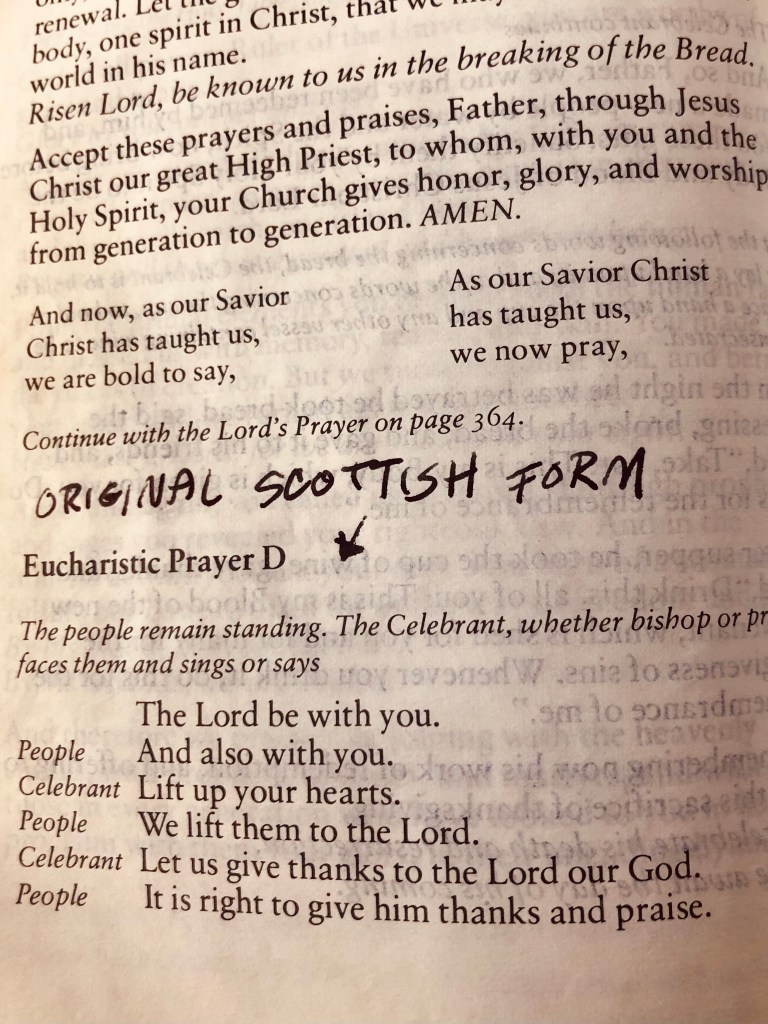 renewal. Let the g
body, one spirit in Christ, that we may
world in his name.
Risen Lord, be known to us in the breaking of the Bread.
Accept these prayers and praises, Father, through Jesus
Christ our great High Priest, to whom, with you and the
Holy Spirit, your Church gives honor, glory, and worship,
from generation to generation. AMEN.
And now, as our Savior
Christ has taught us,
we are bold to say,
As our Savior Christ
has taught us,
we now pray,
Continue with the Lord's Prayer on page 364.
ORIGINAL SCOTTISH FORM
Eucharistic Prayer D
The people remain standing. The Celebrant, whether bishop or pr
faces them and sings or says
The Lord be with you.
People And also with you.
Celebrant Lift up your hearts.
People We lift them to the Lord.
Celebrant Let us give thanks to the Lord our God.
People It is right to give him thanks and praise.